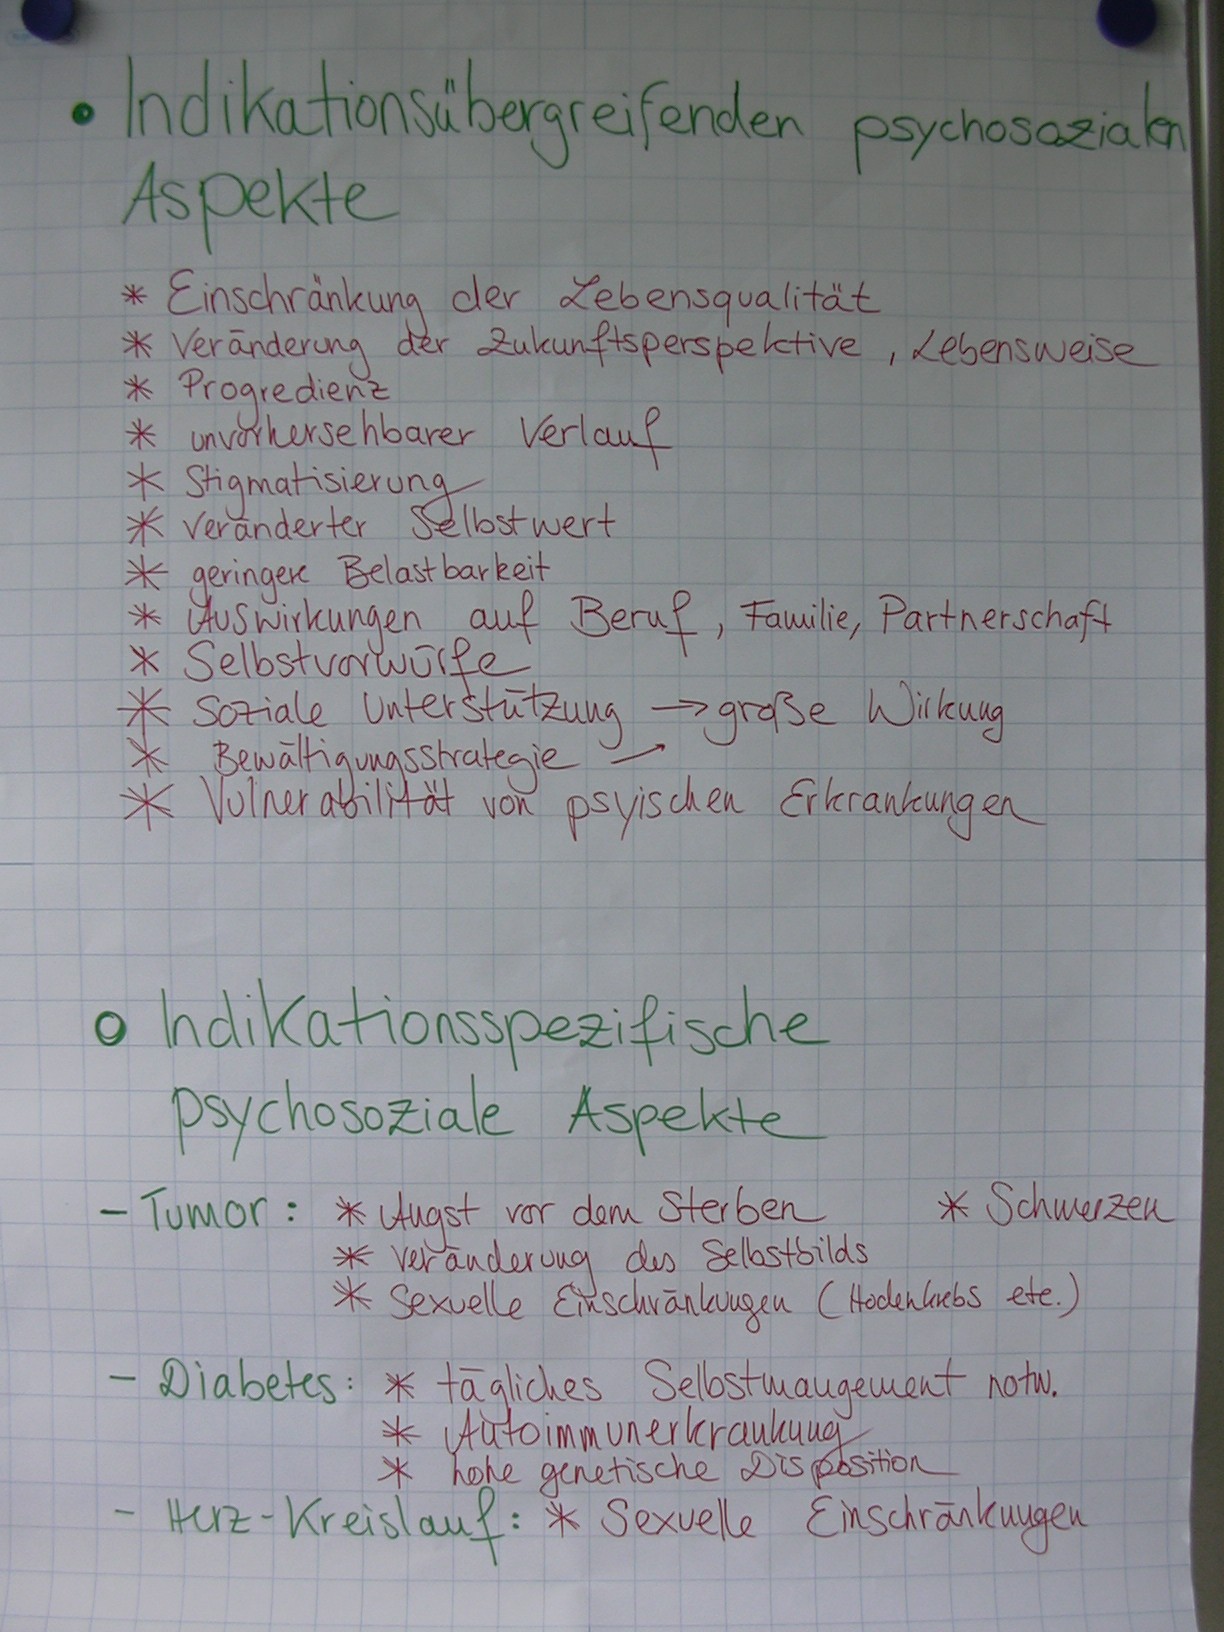 • Indikationsübergreifenden psychosozialen
Aspekte
* Einschränkung der Lebensqualität
* Veränderung der Zukunftsperspektive, Lebensweise
* Progredienz
* unvorhersehbarer Verlauf
* Stigmatisierung
* veränderter Selbstwert
* geringere Belastbarkeit
* Auswirkungen auf Beruf, Familie, Partnerschaft
* Selbstvorwürfe
* Soziale Unterstützung → große Wirkung
* Bewältigungsstrategie →
* Vulnerabilität von psyischen Erkrankungen
o Indikationsspezifische
psychosoziale Aspekte
- Tumor: * Angst vor dem Sterben * Schmerzen
* Veränderung des Selbstbilds
* Sexuelle Einschränkungen (Hodenkrebs etc.)
- Diabetes: * tägliches Selbstmangement notw.
* Autoimmunerkrankung
* hohe genetische Disposition
- Herz-Kreislauf: * Sexuelle Einschränkungen